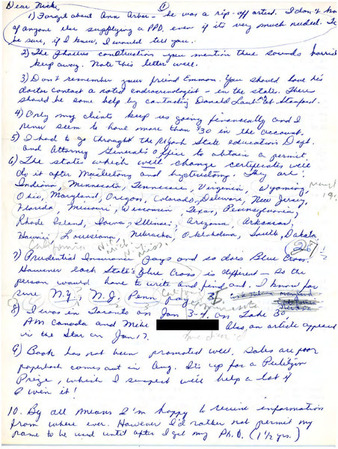 Dear Nick,
1) Forget about Ann Arbor - he was a rip-off artist. I don't know
of anyone else supplying a PPD, even if it's very much needed. To
be sure, if I knew, I would tell you.
2) The phallus construction you mention there sounds horrid
keep away. Note this letter well.
3) Don't remember your friend Emmon. You should have his
doctor contact a noted endocrinologist - in the state. There
should be some help by contacting Donald Laub at Stanford.
4) Only my clients keep us going financially and I
never seem to have more than $30 in the account.
5) I had to go through the State Education Dept.
and Attorney General's Office to obtain a permit.
6) The states which will change certificates will
do it after Mastectomy and hysterectomy. They are:
Indiana, Minnesota, Tennessee, Virginia, Wyoming,
Ohio, Maryland, Oregon, Colorado, Delaware, New Jersey,
Florida, Missouri, Wisconsin, Texas, Pennsylvania,
Rhode Island, Iowa, Illinois, Arizona, Arkansas,
Hawaii, Louisiana, Nebraska, Oklahoma, South Dakota
California
7) Prudential Insurance pays and so does Blue Cross.
However each State's Blue Cross is different - so the
person would have to write and find out. I know for
sure N.Y., N.J., Penn pay
8) I was in Toronto on Jan 3-4, on
AM Canada and Mike Also an article appeared
in the Star on Jan 17.
9) Book has not been promoted well. Sales are poor
paperback comes out in Aug. It's up for a Pulitzer
Prize, which I suspect will help a lot if
I win it!
10. By all means I'm happy to receive information
from where ever. However I'd rather not permit my
name to be used until after I get my Ph.D. (1 1/2 yrs.)